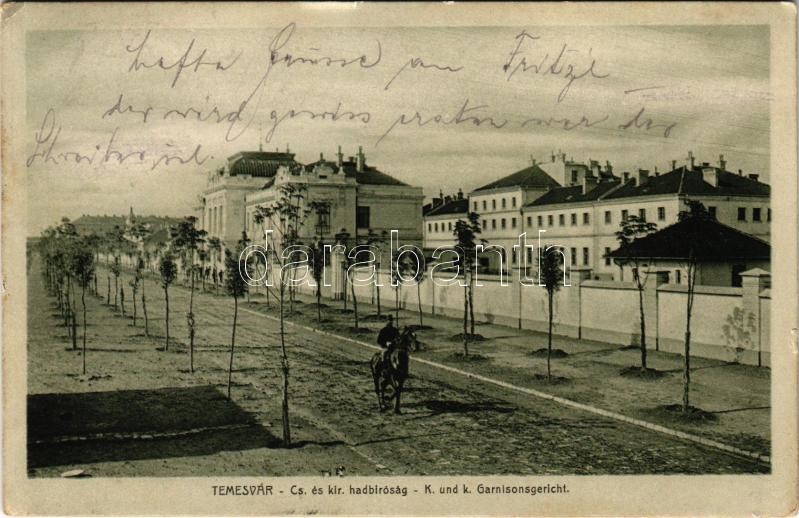 Grüsse an Fritzl
der wird gewiss erraten wer der
Schreiber
darabanth
TEMESVÁR - Cs. és kir. hadbiróság - K. und k. Garnisonsgericht.